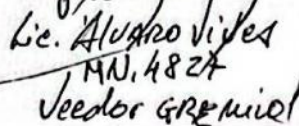 Lic. Alvaro Vives
MN. 4827
Veedor GREMIAL